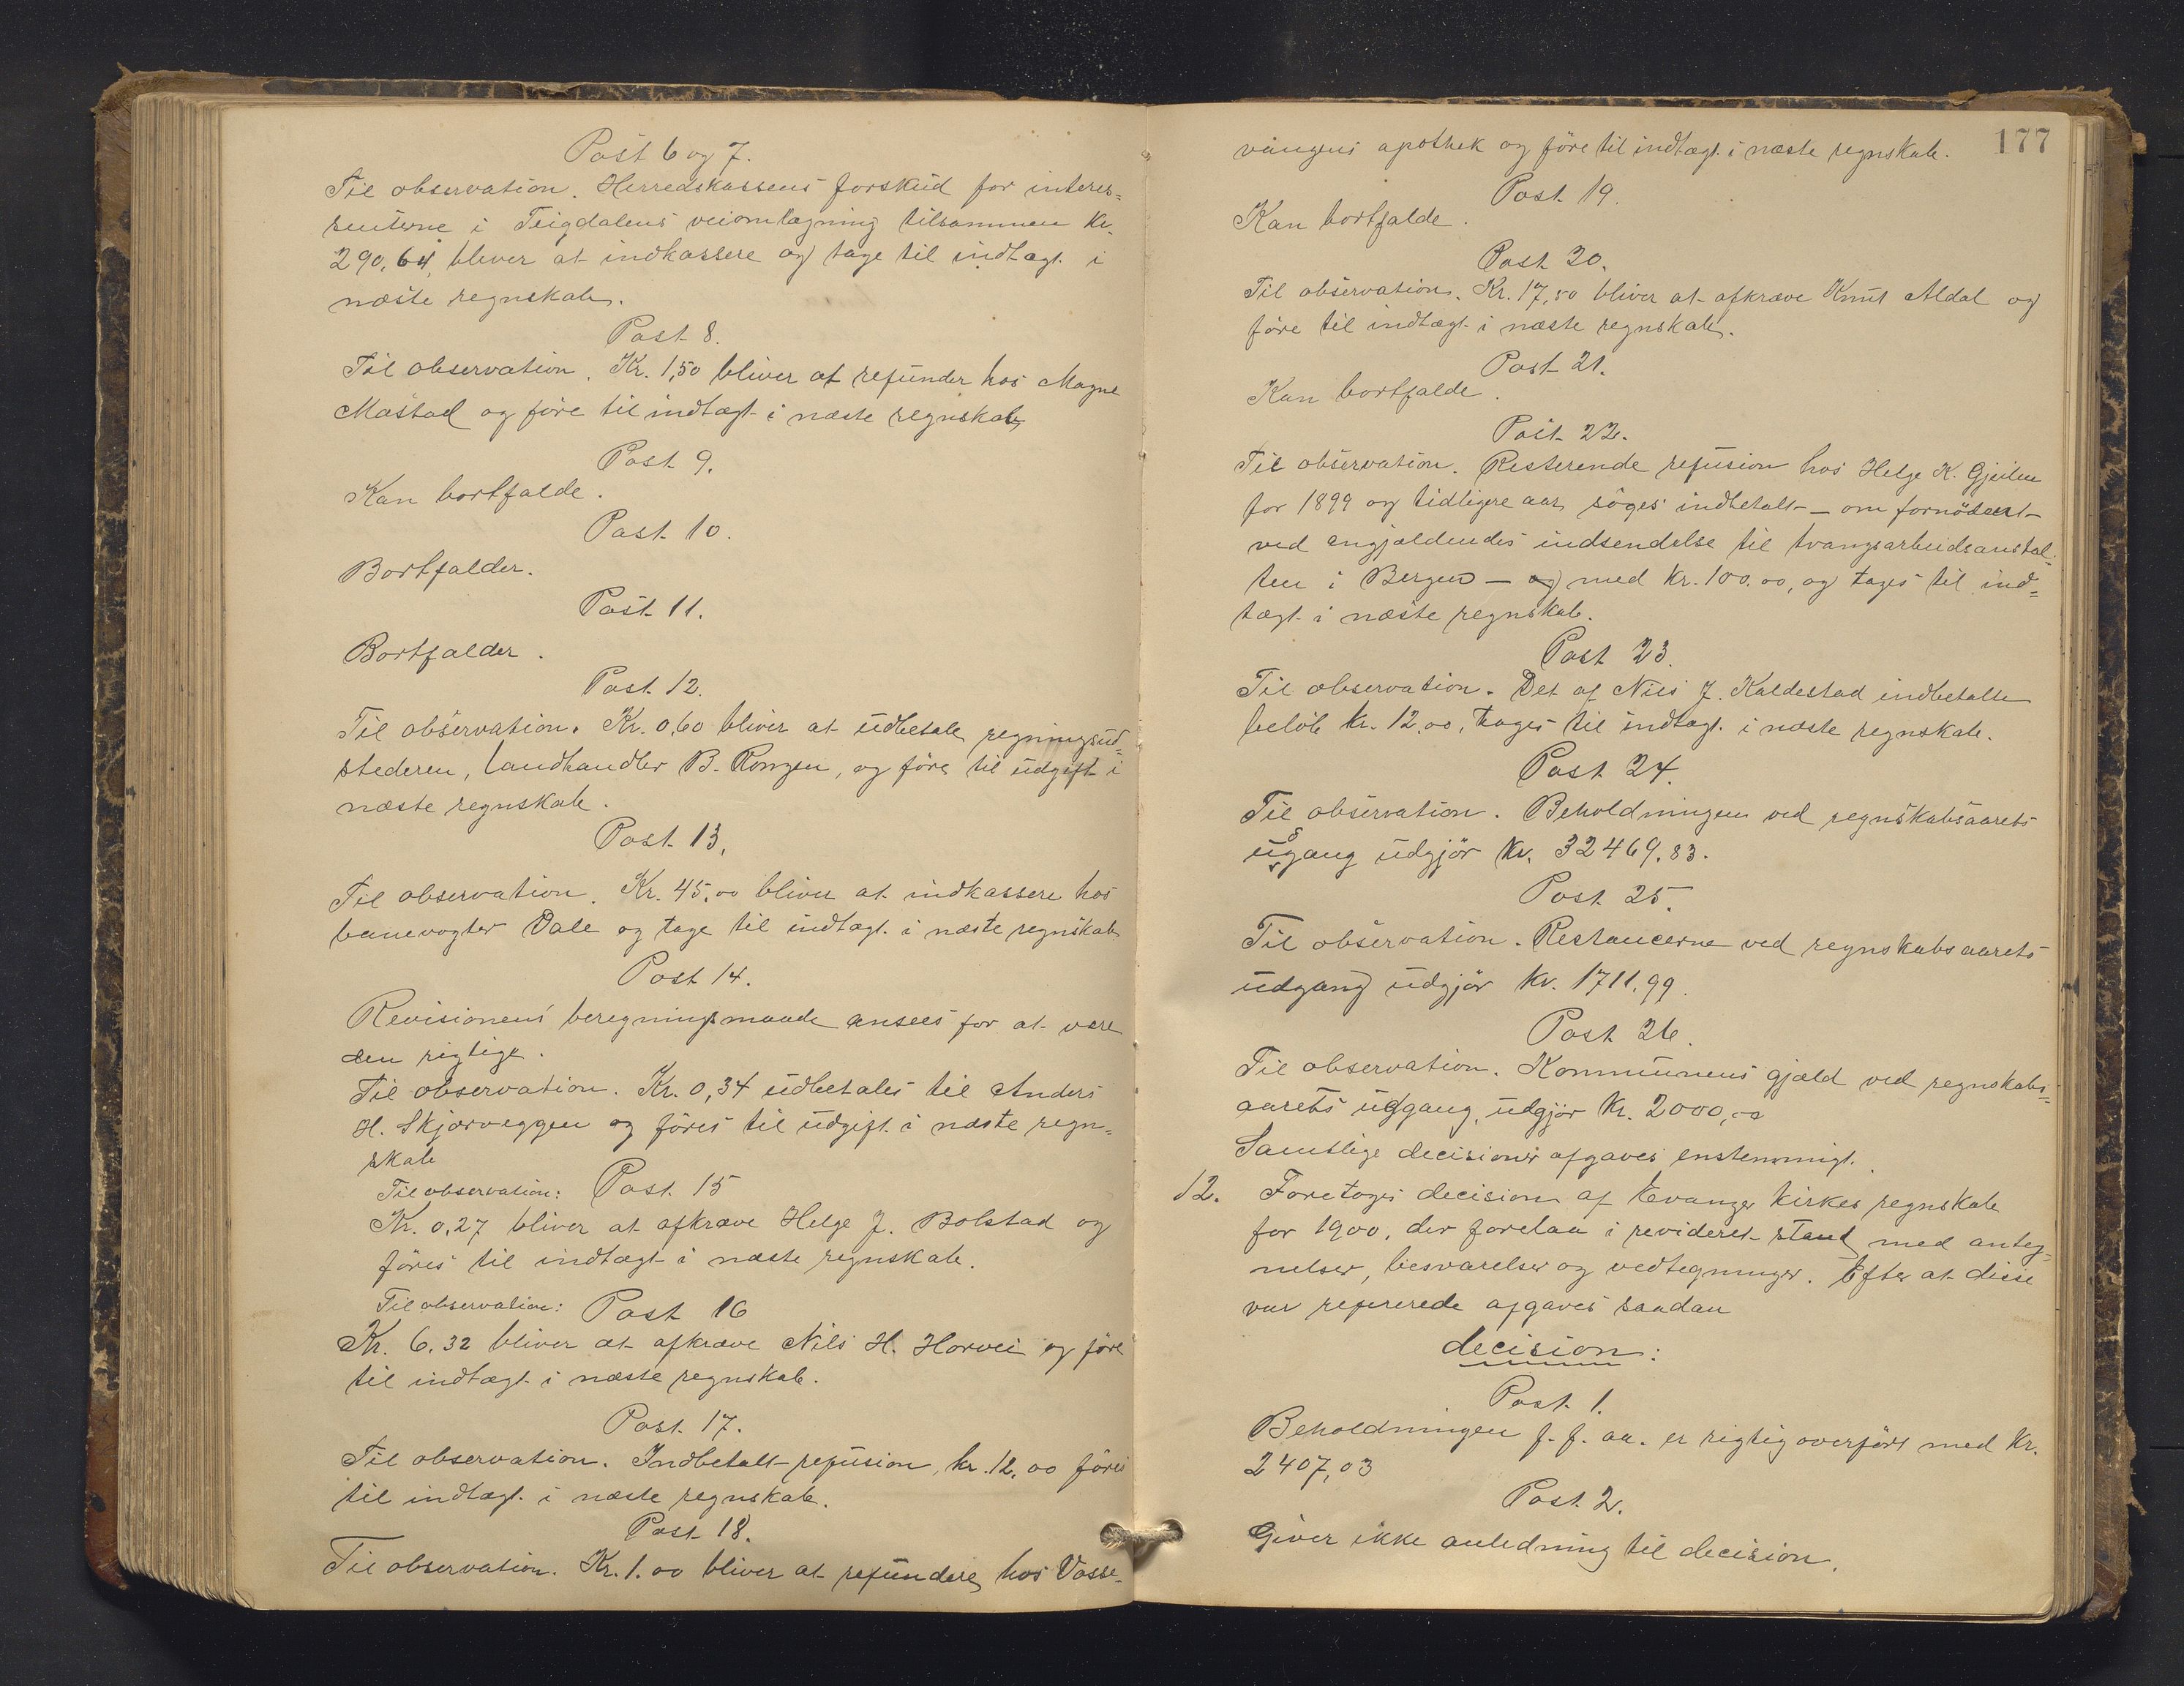 Post 6 og 7.
Til observation. Herredskassens forskud for interes=
senterne i Teigdalens veiomlægning tilsammen kr.
290,64, bliver at indkassere og tage til indtægt i
næste regnskab.
Post 8.
Til observation. Kr. 1,50 bliver at refunder hos Magne
Mastad og føre til indtægt i næste regnskab
Post 9.
Kan bortfalde.
Post 10.
Bortfalder.
Post 11.
Bortfalder.
Post 12.
Til observation. Kr. 0,60 bliver at udbetale regningsud=
stederen, landhandler B. Rongen, og føre til udgift i
næste regnskab.
Post 13.
Til observation. Kr. 45,00 bliver at indkassere hos
banevogter Dale og tage til indtægt i næste regnskab
Post 14.
Revisionens beregningsmaade ansees for at være
den rigtige.
Til observation. Kr. 0,34 udbetales til Anders
H. Skjørveggen og føres til udgift i næste regn=
skab
Til observation: Post 15
Kr. 0,27 bliver at afkræve Helge J. Bolstad og
føres til indtægt i næste regnskab.
Til observation: Post 16
Kr. 6,32 bliver at afkræve Nils H. Horvei og føre
til indtægt i næste regnskab.
Post 17.
Til observation. Indbetalt refusion, kr. 12,00 føres
til indtægt i næste regnskab.
Post 18.
Til observation. Kr. 1.00 bliver at refundere hos Vosse-
177
vangens apothek og føre til indtægt i næste regnskab.
Post 19.
Kan bortfalde.
Post 20.
Til observation. Kr. 17,50 bliver at afkræve Knut Aldal og
føre til indtægt i næste regnskab.
Post 21.
Kan bortfalde.
Post 22.
Til observation. Resterende refusion hos Helge K. Gjeilen
for 1899 og tidligere aar søges indbetalt – om fornødent
ved angjældendes indsendelse til tvangsarbeidsanstal=
ten i Bergen – og med kr. 100.00, og tages til ind=
tægt i næste regnskab.
Post 23.
Til observation. Det af Nils J. Kaldestad indbetalte
beløb kr. 12.00, tages til indtægt i næste regnskab.
Post 24.
Til observation. Beholdningen ved regnskabsaarets
udgang udgjør kr. 32469.83.
Post 25.
Til observation. Restancerne ved regnskabsaarets
udgang udgjør kr. 1711,99.
Post 26.
Til observation. Kommunens gjæld ved regnskabs=
aarets udgang, udgjør kr. 2000,00
Samtlige decisioner afgaves enstemmigt.
12. Foretoges decision af Evanger kirkes regnskab
for 1900, der forelaa i revideret stand med anteg=
nelser, besvarelser og vedtegninger. Efter at disse
var refererede afgaves saadan
decision:
Post 1.
Beholdningen f. f. aa. er rigtig overført med kr.
2407,03
Post 2.
Giver ikke anledning til decision.